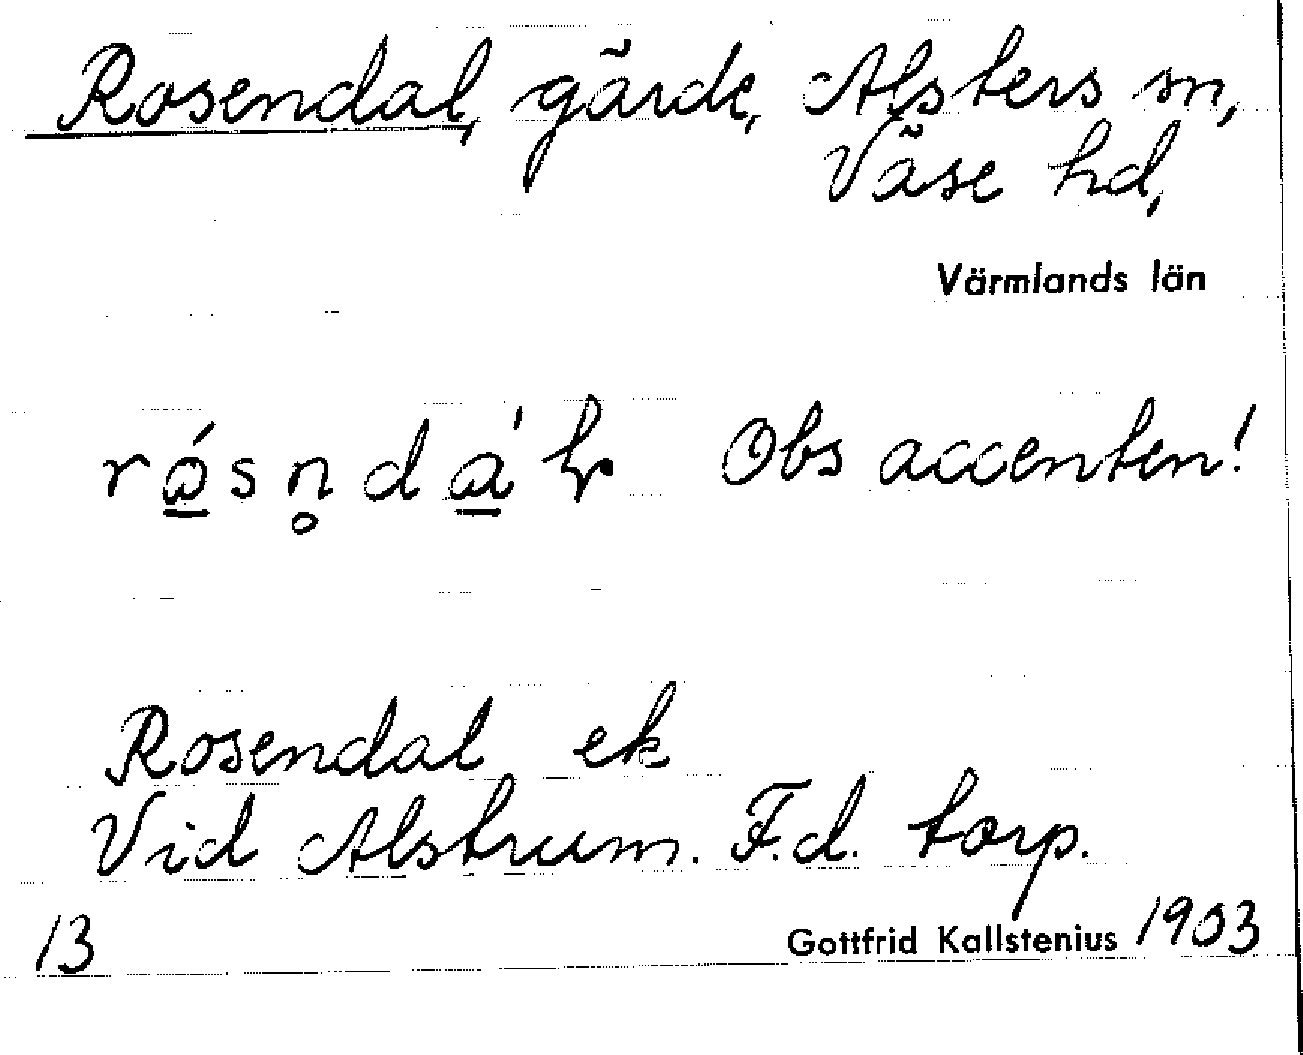 Rosendal, gärde, Alsters sn,
Väse hd,
Värmlands län
Obs accenten!
Rosendal ek
Vid Alstrum. F.d. torp.
13 Gottfrid Kallstenius 1903